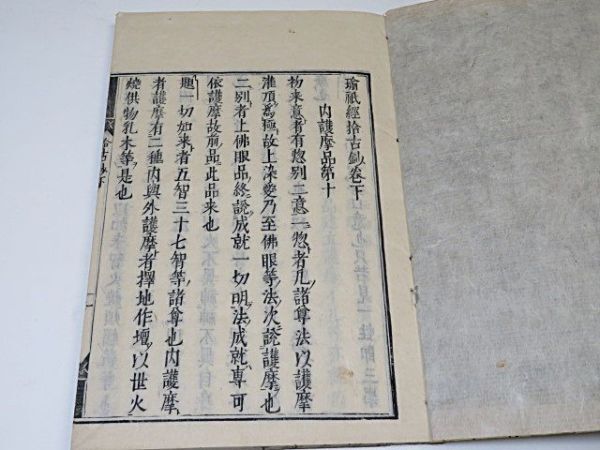 瑜祇經拾古鈔卷下
内護摩品第十
初来意者有惣別二意一惣者凡諸尊法以護摩
灌頂爲極故上染愛乃至佛眼等法次說護摩也
二別者上佛眼品終說成就一切明法成就專可
依護摩故前品此品来也
題一切如来者五智三十七智等諸尊也内護摩
者護摩有二種内與外護摩者擇地作壇以世火
燒供物乳木等是也
拾古鈔下